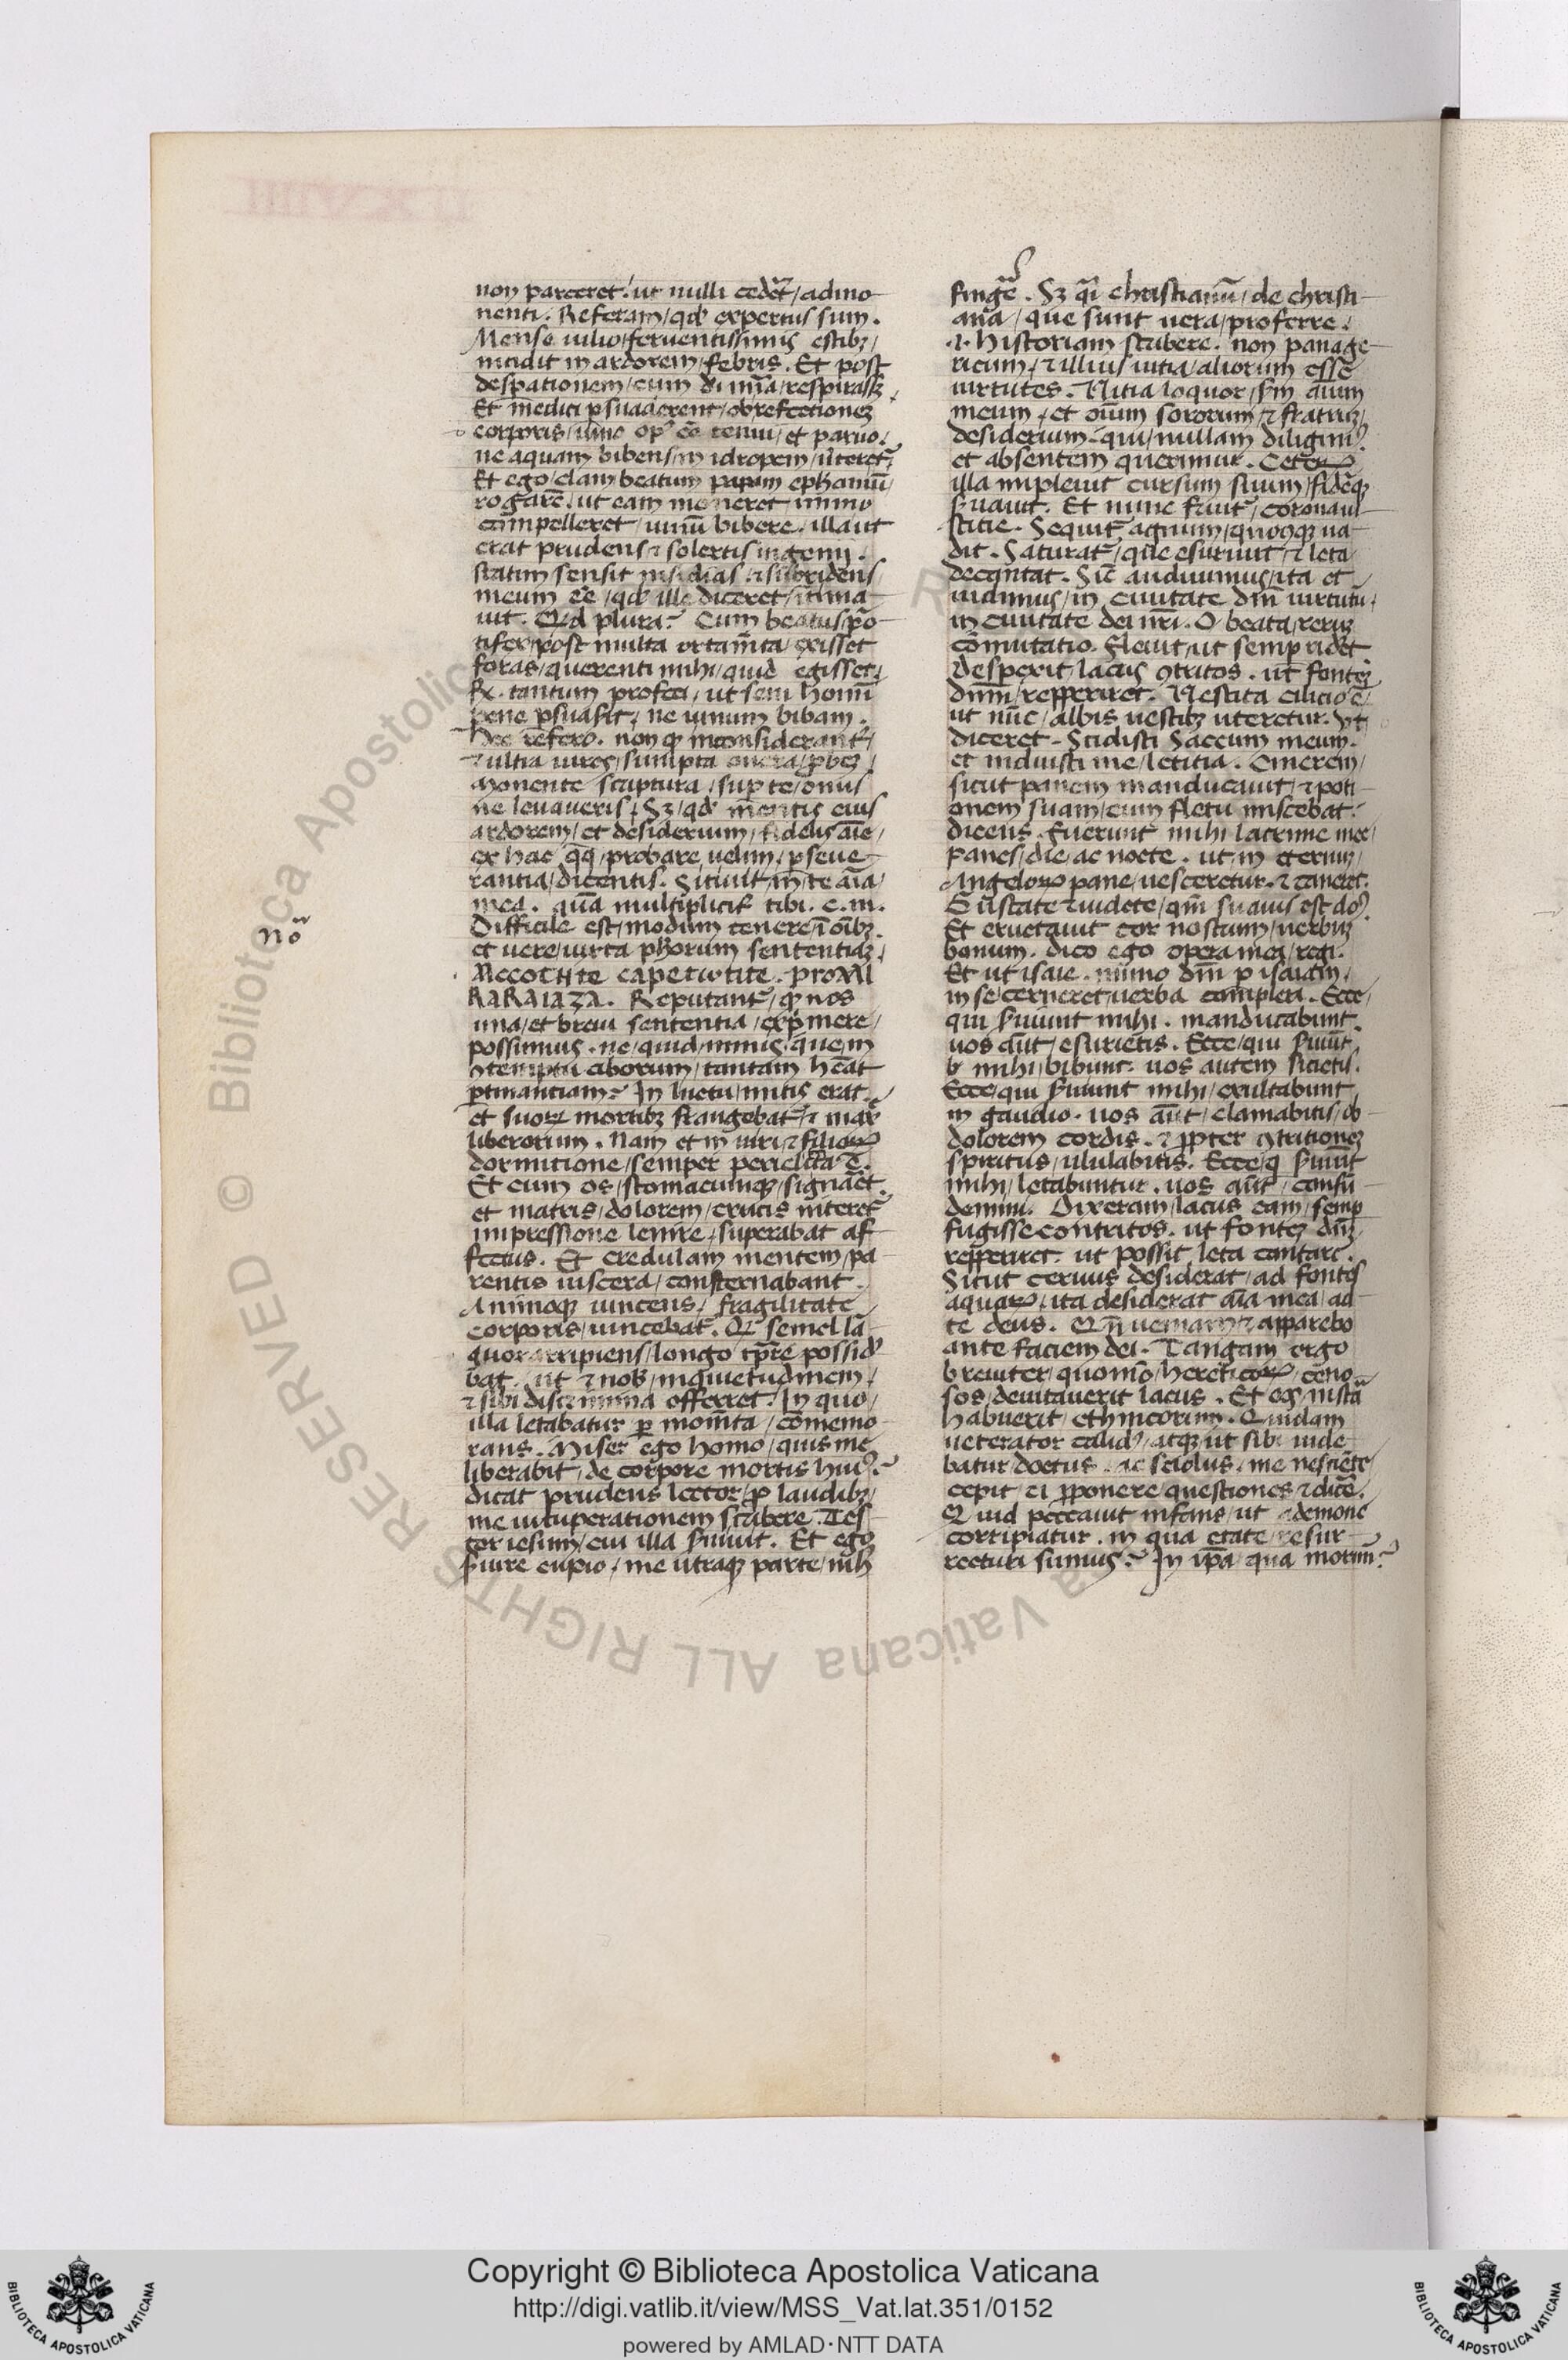 non parceret. ut nulli cedēt / admo-
nenti. Referam / qď expertus sum.
Mense iulio / feruentissimis estibꝫ /
incidit in ardorem / febris. Et post
despationem / cum di mīa / respirassꝫ
Et medici psuaderent / ob refectionez
corporis / uino opꝰ eē tenui / et paruo.
ne aquam bibens / in idropem / uteret᷑.
Et ego / clam beatum papam ephaniū /
rogarē. ut eam moneret immo
compelleret / uinū bibere. illa ut
erat prudens ⁊ solertis ingenii.
statim sensit insidias / ⁊ subridens /
meum eē / qď ille diceret / intima-
uit. Qid plura? Cum beatus / pō-
tifex / post multa ortam̄ta / exisset
foras / querenti mihi / quid egisset.
Rꝫ. tantum profeci / ut seni homī
pene psuasit. ne uinum bibam.
Hec refero. non ꝙ inconsiderant᷑ /
⁊ ultra uires / sumpta onera / ꝓbē /
Monente scriptura / sup te / onus
ne leuaueris. Sꝫ / qď mentis eius
ardorem / et desiderium / fidelis aīe /
ex hac qq̄ / probare uelim / pseue-
rantia / dicentis. Sitiuit / in te aīa /
mea. quā multiplicit᷑ tibi. c. m.
Difficile est / modum tenere / ī oībꝫ.
nō
et uere / iuxta phorum sententiaꝫ.
RARAIAZA. Reputant᷑ / ꝙ nos
una / et breui sententia / exp̄mere /
possumus. ne / quid / nimis. que / in
ↄtemptu ciborum / tantam hēat
ptinantiam? In luctu / mitis erat.
et suoꝝ mortibꝫ frangebat᷑ / ⁊ maxē
liberorum. Nam et in uiri / ⁊ filioꝝ
dormitione / semper periclitata ē.
Et cum os / stomacumqꝫ / signaēt
et matris / dolorem / crucis niteret᷑
impressione lenire / superabat af
fectus. Et credulam mentem / pa
rentis uiscera / consternabant.
Animoqꝫ uincens / fragilitate
corporis / uincebat᷑. Q semel la-
quor arripiens / longo tp̄re possid
bat. ut ⁊ nob / inquietudinem /
⁊ sibi discrimina offerret. In quo /
illa letabatur p mom̄ta / comemo
rans. Miser ego homo / quis me
liberabit / de corpore mortis huiꝰ?
dicat prudens lector / ꝓ laudibꝫ /
me uituperationem scribere. Tes
tor iesum / cui illa s̄uiuit. Et ego
s̄uire cupio / me utraqꝫ parte / nih
fingē. Sꝫ qī christianū / de christi-
ana / que sunt uera / proferre.
.i. Historiam scribere. non panage-
ricum / ⁊ illius uitia / aliorum esse
uirtutes. Uitia loquor / s̄m aīum
meum / et oīum sororum / ⁊ fratrūꝫ
desiderium. qui / nullam diligimꝰ.
et absentem querimus. Ceteꝝ
illa impleuit cursum suum / fidēqꝫ
s̄uauit. Et nunc fruit᷑ / corona iu
stitie. Sequit᷑ agnum / quocqꝫ ua-
dit. Saturat᷑ / que esuriuit / ⁊ leta
decantat. Sic̄ audiuimus / ita et
uidimus / in ciuitate dn̄i uirtutū.
in ciuitate dei nr̄i. O beata / rerūꝫ
cōmutatio. Fleuit / ut semp ridēt
despexit / lacus ↄtritos. ut fonteꝫ
dnm̄ / repperiret. Uestita cilicio ē /
ut nūc / albis uestibꝫ uteretur. Ut
diceret. Scidisti saccum meum.
et induisti me / letitia. Cinerem /
sicut panem manducauit / ⁊ poti-
onem suam / cum fletu miscebat.
dicens. Fuerunt mihi lacrime mee /
Panes / die / ac nocte. ut / in eternū /
Angeloꝝ pane / uesceretur. ⁊ caneret.
Gustate ⁊ uidete / qm̄ suauis est dnꝰ.
Et eructauit cor nostrum / uerbūꝫ
bonum. dico ego opera mea / regi.
Et ut isaie. immo dn̄i p isaiam.
in se / cerneret / uerba compleri. Ecce /
qui s̄uiunt mihi. manducabunt.
uos aūt / esurietis. Ecce / qui s̄uiūt
mihi / bibunt. uos autem sicietis.
Ecce / qui s̄uiunt mihi / exultabunt
in gaudio. uos aūt / clamabitis / ob
dolorem cordis. ⁊ ꝓpter ↄtritionez
spiritus / ululabitis. Ecce / q s̄uiūt
mihi / letabuntur. uos aūt / confū
demini. Dixeram / lacus eam / semp
fugisse contritos. ut fonteꝫ dn̄ꝫ
repperiret. ut possit leta cantare.
Sicut ceruus desiderat / ad fontes
aquaꝝ. ita desiderat aīa mea / ad
te deus. Qn̄ ueniam / ⁊ apparebo
ante faciem dei. Tangam ergo
breuiter / quomō / hereticoꝝ / ceno-
sos / deuitauerit lacus. Et eos / instā
habuerit / ethnicorum. Quidam
ueterator calidꝰ / atqꝫ / ut sibi uide
batur / doctus. ac sciolus. me nesciēte /
cepit / ei ꝓponere / questiones ⁊ dicē.
Quid peccauit infans / ut a demone
corripiatur. in qua etate resur-
recturi sumus? In ip̄a / qua morim̄?
© Biblioteca Apostolica Vaticana ALL RIGHTS RESERVED
Copyright © Biblioteca Apostolica Vaticana
http://digi.vatlib.it/view/MSS_Vat.lat.351/0152
powered by AMLAD·NTT DATA
BIBLIOTECA APOSTOLICA VATICANA
BIBLIOTECA APOSTOLICA VATICANA